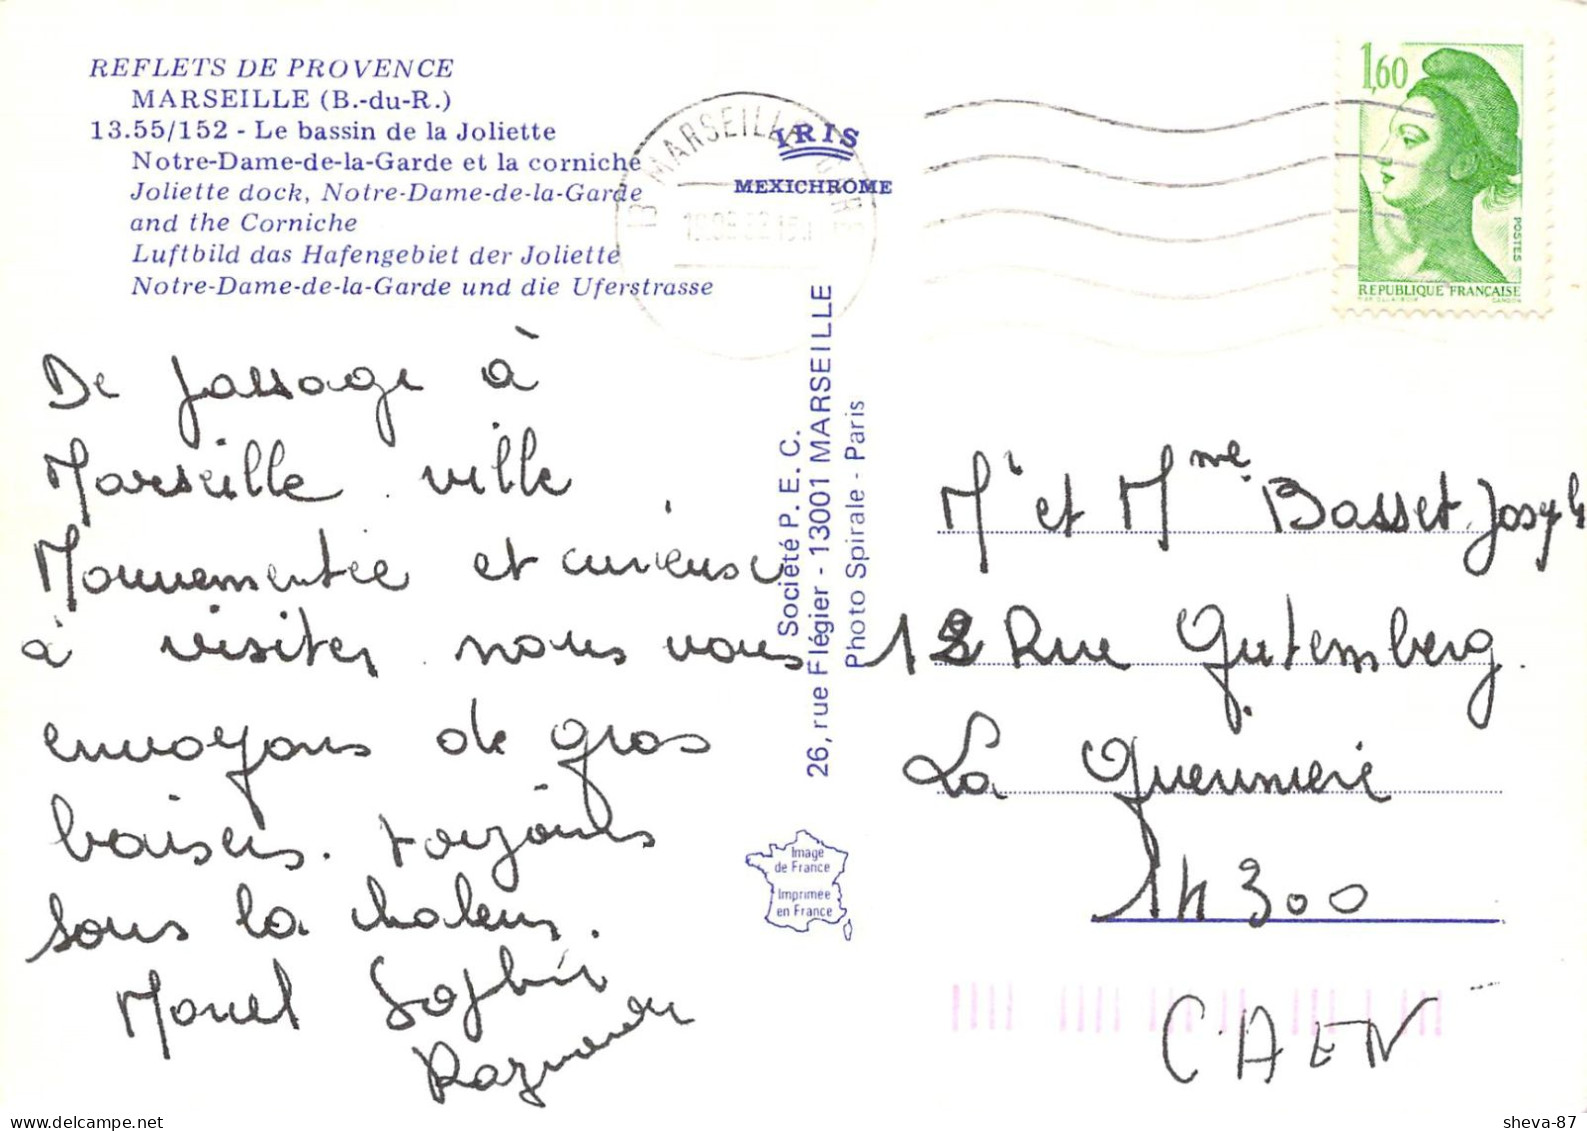 REFLETS DE PROVENCE
MARSEILLE (B.-du-R.)
13.55/152 - Le bassin de la Joliette
Notre-Dame-de-la-Garde et la corniche
Joliette dock, Notre-Dame-de-la-Garde
and the Corniche
Luftbild das Hafengebiet der Joliette
Notre-Dame-de-la-Garde und die Uferstrasse
13 MARSEILLE
IRIS
MEXICHROME
1,60
POSTES
REPUBLIQUE FRANÇAISE
GANDON
De passage à
Marseille ville
Mouvementée et curieuse
à visiter nous vous
envoyons de gros
baisers. toujours
sous la chaleur.
Sophie
Raymonde
Société P.E.C.
26, rue Flégier - 13001 MARSEILLE
Photo Spirale - Paris
Image
de France
Imprimée
en France
Mr et Mme Basset Joseph
12 Rue Gutemberg
La Guerinière
14300
CAEN
sheva-87